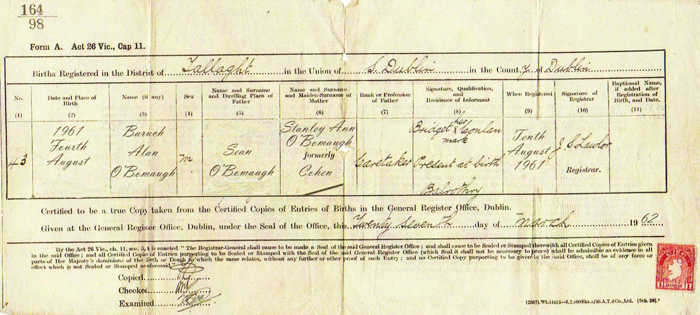 164
98
Form A. Act 26 Vic., Cap 11.
Births Registered in the District of Tallaght in the Union of S. Dublin in the County of Dublin
No. Date and Place of Birth Name (if any) Sex Name and Surname and Dwelling Place of Father Name and Surname and Maiden Surname of Mother Rank or Profession of Father Signature, Qualification, and Residence of Informant When Registered Signature of Registrar Baptismal Name, if added after Registration of Birth, and Date.
(1) (2) (3) (4) (5) (6) (7) (8) (9) (10) (11)
43
1961
Fourth
August
Baruch
Alan
O'Bomaugh
m
Sean
O'Bomaugh
Stanley Ann
O'Bomaugh
formerly
Cohen
Caretaker
Bridget her X Conlan
mark
Present at birth
Balrothry
Tenth
August
1961
J S Lawlor
Registrar.
Certified to be a true Copy taken from the Certified Copies of Entries of Births in the General Register Office, Dublin.
Given at the General Register Office, Dublin, under the Seal of the Office, this Twenty seventh day of March 1962
By the Act 26 Vic., ch. 11, sec. 5, it is enacted "The Registrar-General shall cause to be made a Seal of the said General Register Office; and shall cause to be Sealed or Stamped therewith all Certified Copies of Entries given
in the said Office; and all Certified Copies of Entries purporting to be Sealed or Stamped with the Seal of the said General Register Office (which Seal it shall not be necessary to prove) shall be admissible as evidence in all
parts of Her Majesty's dominions of the Birth or Death to which the same relates, without any further or other proof of such Entry; and no Certified Copy purporting to be given in the said Office, shall be of any force or
effect which is not Sealed or Stamped as aforesaid."
Copied
Checked
Examined